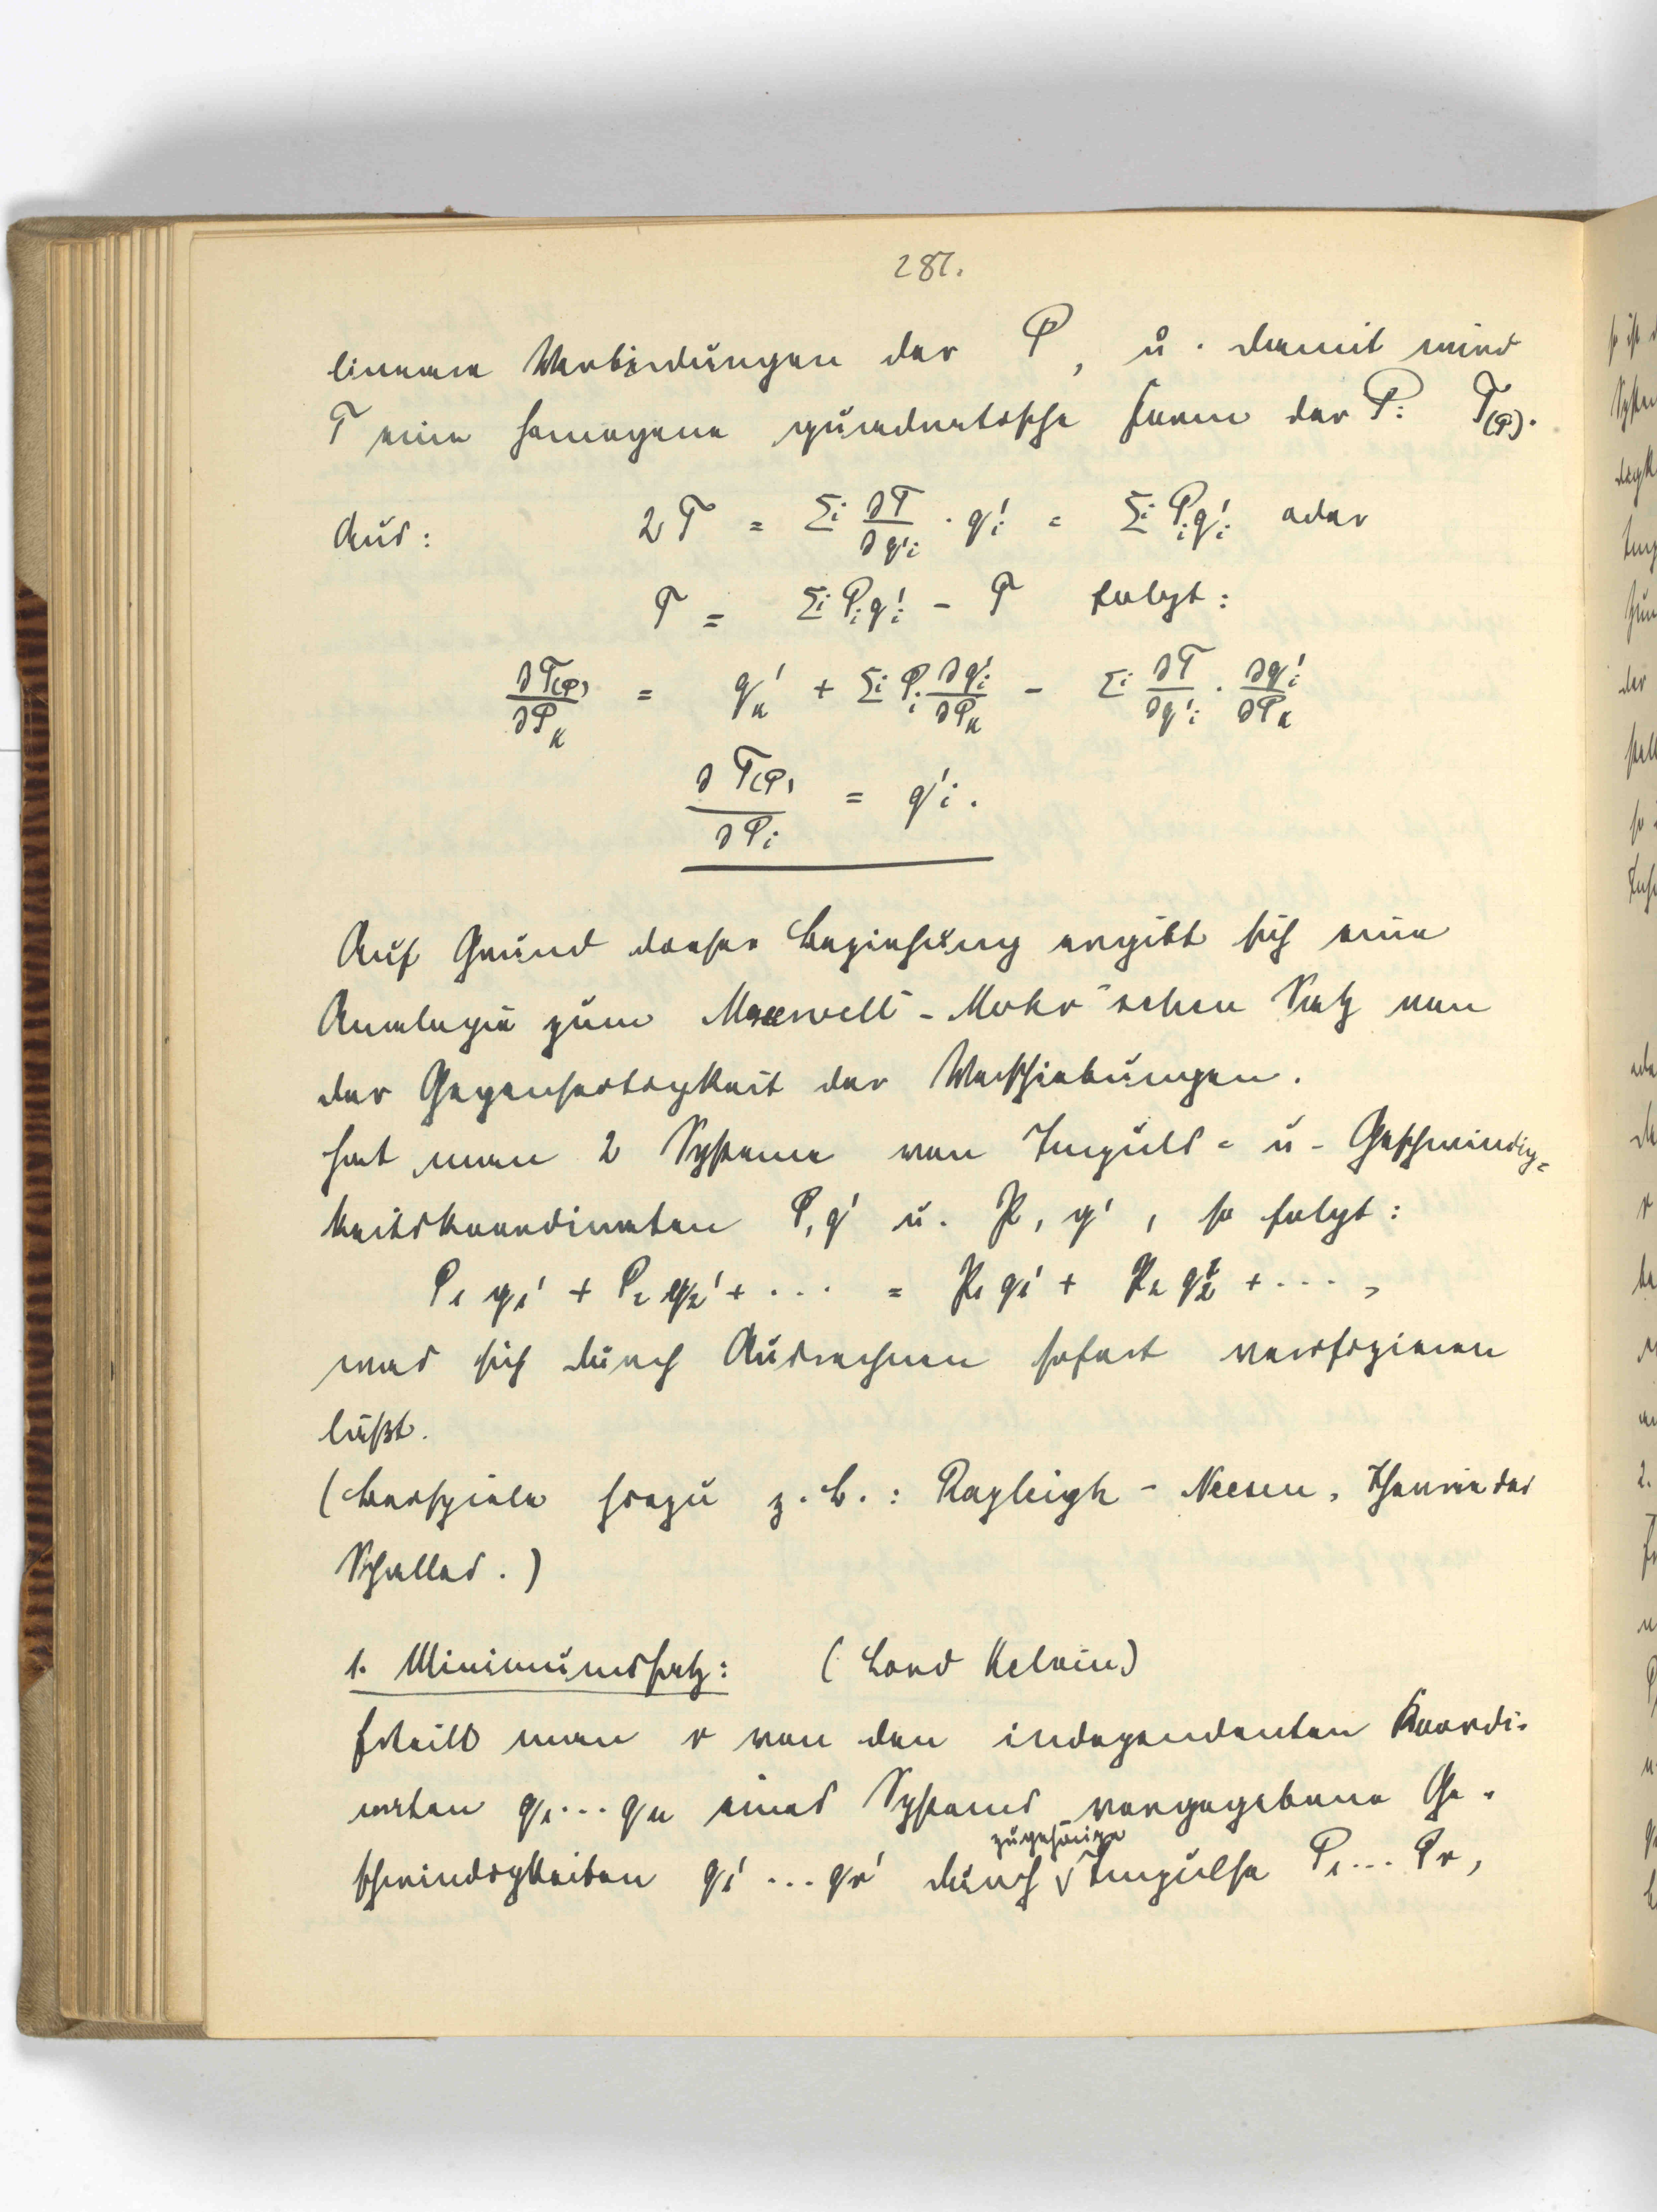 287.
lineare Verbindungen der P, u. damit wird
T eine homogene quadratische Form der P: T(P).
Aus: 2T = Σi ∂T/∂q'i · q'i = Σi Pi q'i oder
T = Σi Pi q'i - T folgt:
∂T(P)/∂Pk = q'k + Σi Pi ∂q'i/∂Pk - Σi ∂T/∂q'i · ∂q'i/∂Pk
∂T(P)/∂Pi = q'i.
Auf Grund dieser Beziehung ergibt sich eine
Analogie zum Maxwell-Mohr'schen Satz von
der Gegenseitigkeit der Verschiebungen.
Hat man 2 Systeme von Impuls= u- Geschwindig=
keitskoordinaten P, q' u. p, q', so folgt:
P1 q1' + P2 q2' + ... = p1 q1' + p2 q2' + ...,
was sich durch Ausrechnen sofort verifizieren
läßt.
(Beispiele hiezu z.B.: Rayleigh - Neesen, Theorie des
Schalles.)
1. Minimumsatz: (Lord Kelvin)
Erteilt man r von den independenten Koordi-
naten q1...qn eines Systems vorgegebene Ge-
zugehörige
schwindigkeiten q1'...qr' durch √ Impulse P1...Pr,